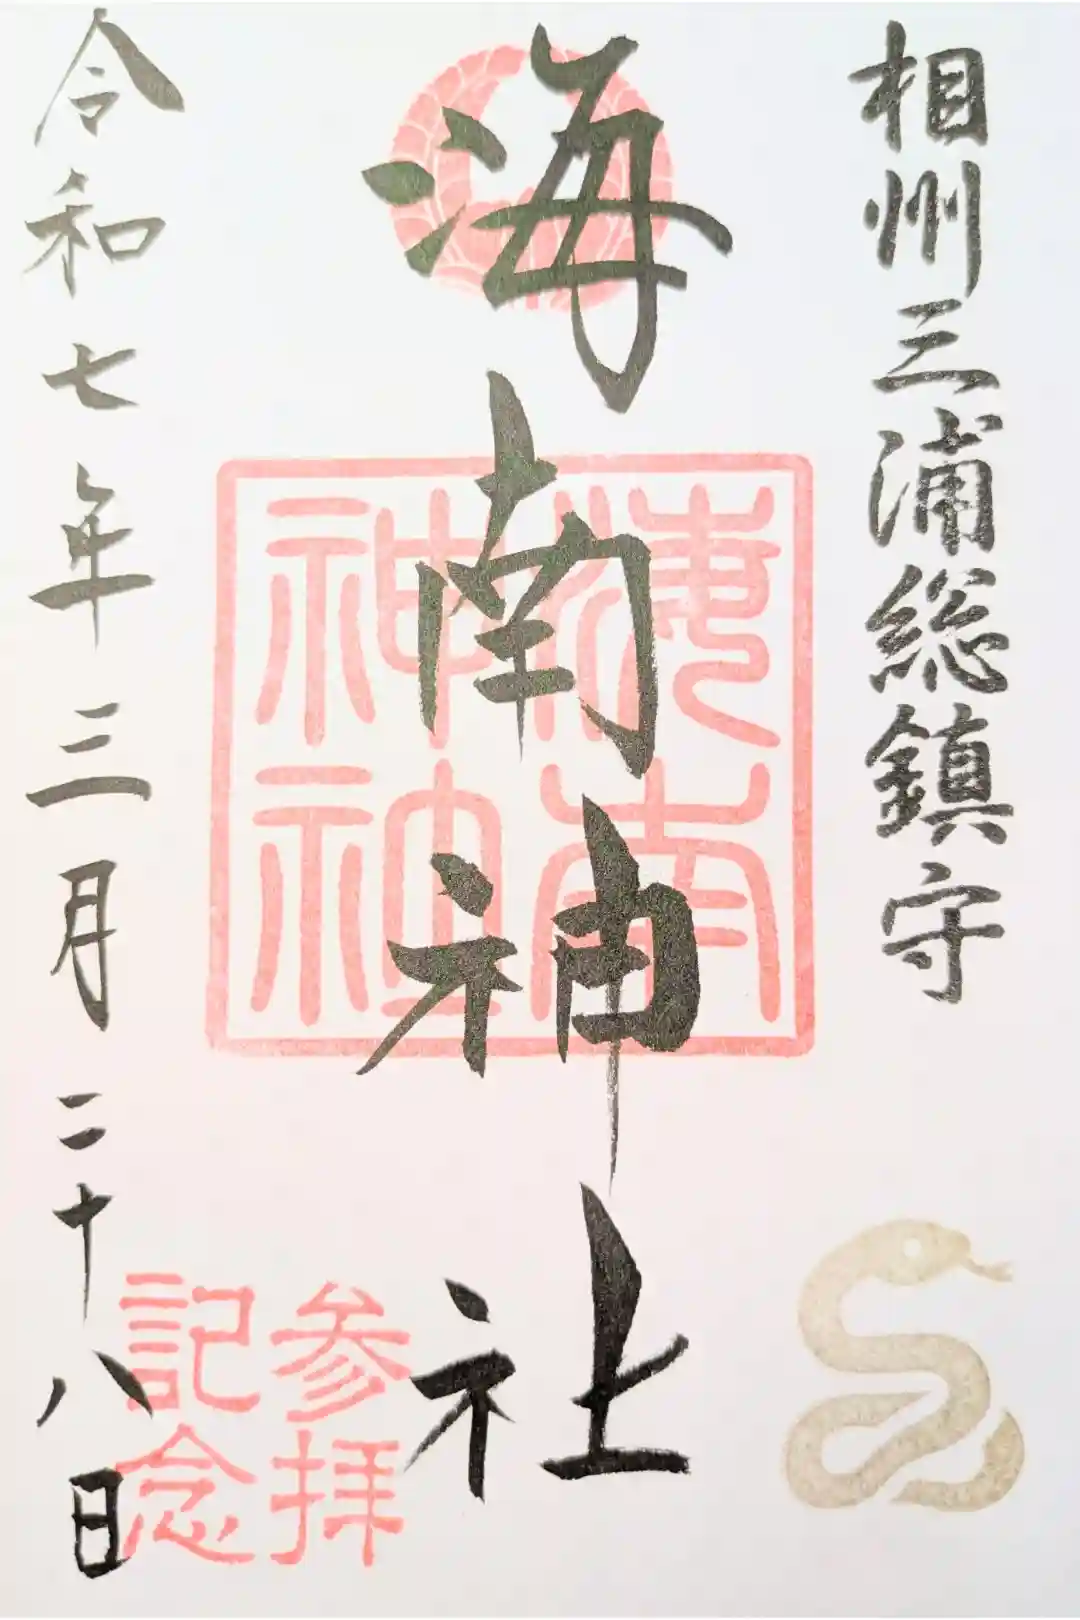 相州三浦総鎮守
海南神社
海南
神社
令和七年三月二十八日
参拝
記念